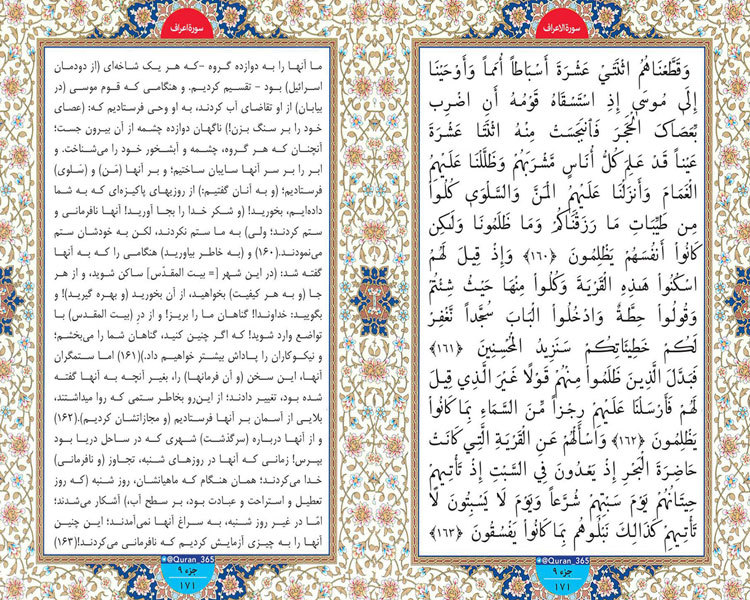 سورة الاعراف
وَقَطَّعْنَاهُمُ اثْنَتَيْ عَشْرَةَ أَسْبَاطاً أُمَماً وَأَوْحَيْنَا
إِلَى مُوسَى إِذِ اسْتَسْقَاهُ قَوْمُهُ أَنِ اضْرِب
بِّعَصَاكَ الْحَجَرَ فَانبَجَسَتْ مِنْهُ اثْنَتَا عَشْرَةَ
عَيْناً قَدْ عَلِمَ كُلُّ أُنَاسٍ مَّشْرَبَهُمْ وَظَلَّلْنَا عَلَيْهِمُ
الْغَمَامَ وَأَنزَلْنَا عَلَيْهِمُ الْمَنَّ وَالسَّلْوَى كُلُواْ
مِن طَيِّبَاتِ مَا رَزَقْنَاكُمْ وَمَا ظَلَمُونَا وَلَكِن
كَانُواْ أَنفُسَهُمْ يَظْلِمُونَ ﴿۱۶۰﴾ وَإِذْ قِيلَ لَهُمُ
اسْكُنُواْ هَذِهِ الْقَرْيَةَ وَكُلُواْ مِنْهَا حَيْثُ شِئْتُمْ
وَقُولُواْ حِطَّةٌ وَادْخُلُواْ الْبَابَ سُجَّداً نَّغْفِرْ
لَكُمْ خَطِيئَاتِكُمْ سَنَزِيدُ الْمُحْسِنِينَ ﴿۱۶۱﴾
فَبَدَّلَ الَّذِينَ ظَلَمُواْ مِنْهُمْ قَوْلاً غَيْرَ الَّذِي قِيلَ
لَهُمْ فَأَرْسَلْنَا عَلَيْهِمْ رِجْزاً مِّنَ السَّمَاءِ بِمَا كَانُواْ
يَظْلِمُونَ ﴿۱۶۲﴾ وَاسْأَلْهُمْ عَنِ الْقَرْيَةِ الَّتِي كَانَتْ
حَاضِرَةَ الْبَحْرِ إِذْ يَعْدُونَ فِي السَّبْتِ إِذْ تَأْتِيهِمْ
حِيتَانُهُمْ يَوْمَ سَبْتِهِمْ شُرَّعاً وَيَوْمَ لاَ يَسْبِتُونَ لاَ
تَأْتِيهِمْ كَذَلِكَ نَبْلُوهُم بِمَا كَانُوا يَفْسُقُونَ ﴿۱۶۳﴾
@Quran_365
جزء ۹
۱۷۱
سورة اعراف
ما آنها را به دوازده گروه -که هر یک شاخه‌ای (از دودمان
اسرائیل) بود - تقسیم کردیم. و هنگامی که قوم موسی (در
بیابان) از او تقاضای آب کردند، به او وحی فرستادیم که: (عصای
خود را بر سنگ بزن!) ناگهان دوازده چشمه از آن بیرون جست؛
آنچنان که هر گروه، چشمه و آبشخور خود را می‌شناخت. و
ابر را بر سر آنها سایبان ساختیم؛ و بر آنها (مَن) و (سَلوی)
فرستادیم؛ (و به آنان گفتیم:) از روزیهای پاکیزه‌ای که به شما
داده‌ایم، بخورید! (و شکر خدا را بجا آورید! آنها نافرمانی و
ستم کردند؛ ولی) به ما ستم نکردند، لکن به خودشان ستم
می‌نمودند.(۱۶۰) و (به خاطر بیاورید) هنگامی را که به آنها
گفته شد: (در این شهر [= بیت المقدّس] ساکن شوید، و از هر
جا (و به هر کیفیت) بخواهید، از آن بخورید (و بهره گیرید)! و
بگویید: خداوندا! گناهان ما را بریز! و از درِ (بیت المقدس) با
تواضع وارد شوید! که اگر چنین کنید، گناهان شما را می‌بخشم؛
و نیکوکاران را پاداش بیشتر خواهیم داد.)(۱۶۱) اما ستمگران
آنها، این سخن (و آن فرمانها) را، بغیر آنچه به آنها گفته
شده بود، تغییر دادند؛ از این‌رو بخاطر ستمی که روا میداشتند،
بلایی از آسمان بر آنها فرستادیم (و مجازاتشان کردیم).(۱۶۲)
و از آنها درباره (سرگذشت) شهری که در ساحل دریا بود
بپرس! زمانی که آنها در روزهای شنبه، تجاوز (و نافرمانی)
خدا می‌کردند؛ همان هنگام که ماهیانشان، روز شنبه (که روز
تعطیل و استراحت و عبادت بود، بر سطح آب،) آشکار می‌شدند؛
امّا در غیر روز شنبه، به سراغ آنها نمی‌آمدند؛ این چنین
آنها را به چیزی آزمایش کردیم که نافرمانی می‌کردند!(۱۶۳)
@Quran_365
جزء ۹
۱۷۱